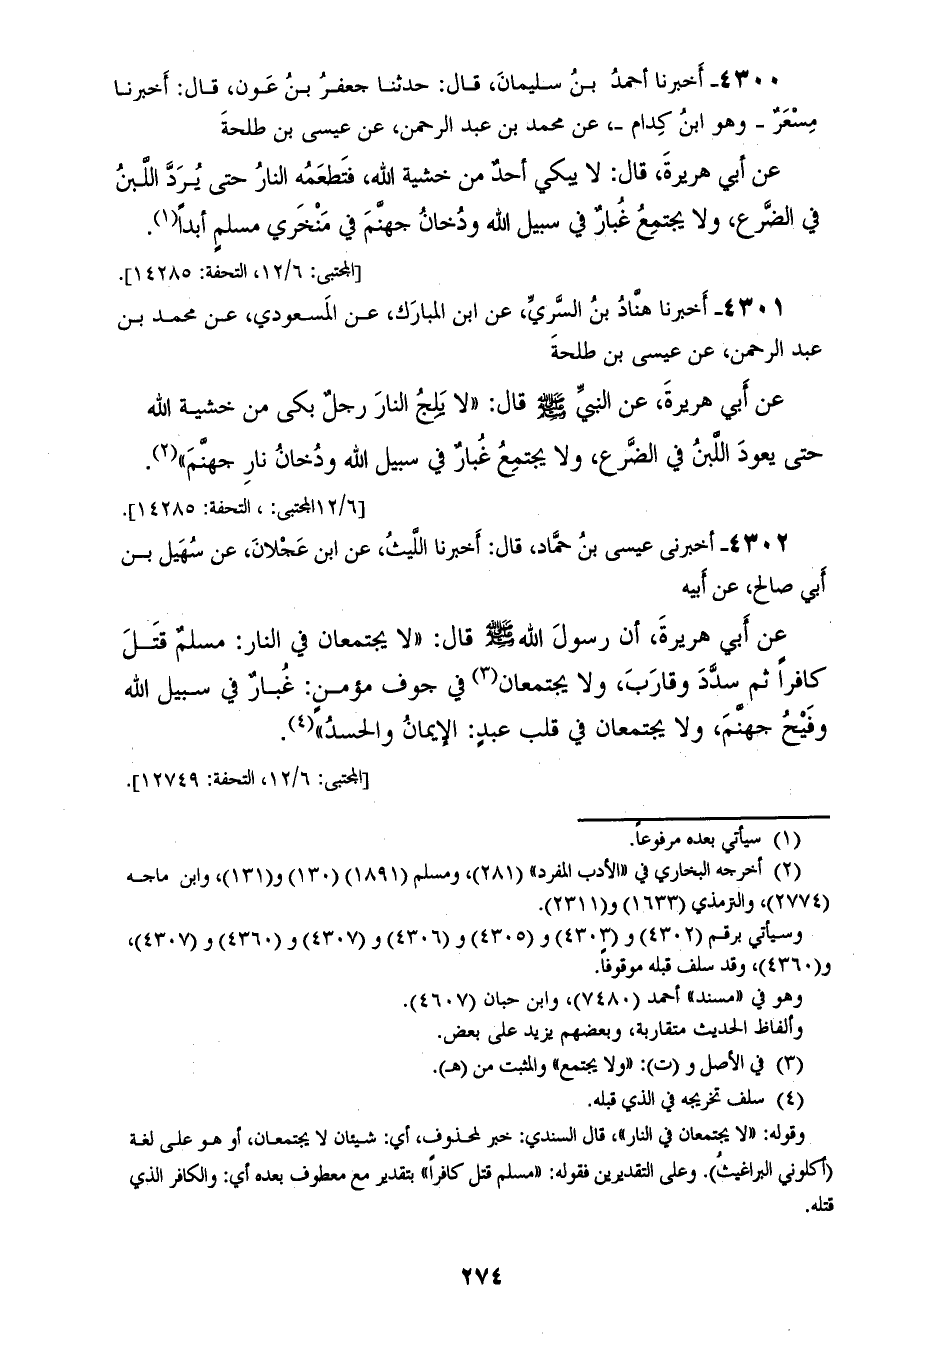 ٤٣٠٠ـ أَخبرنا أحمدُ بنُ سليمانَ، قال: حدثنا جعفرُ بنُ عَون، قال: أَخبرنا
مِسْعَرٌ - وهو ابنُ كِدام -، عن محمد بن عبد الرحمن، عن عيسى بن طلحةَ
عن أَبي هريرةَ، قال: لا يبكي أحدٌ من خشية الله، فتَطعَمُه النارُ حتى يُرَدَّ اللَّبنُ
في الضَّرع، ولا يجتمِعُ غُبارٌ في سبيل الله ودُخانُ جهنَّمَ في مَنْخَري مسلمٍ أبداً(١).
[المجتبى: ١٢/٦، التحفة: ١٤٢٨٥].
٤٣٠١ـ أَخبرنا هنَّادُ بنُ السَّريِّ، عن ابن المبارَك، عن المَسعودي، عن محمد بن
عبد الرحمن، عن عيسى بن طلحةَ
عن أَبي هريرةَ، عن النبيِّ ﷺ قال: «لا يَلِجُ النارَ رجلٌ بكى من خشية الله
حتى يعودَ اللَّبنُ في الضَّرع، ولا يجتمِعُ غُبارٌ في سبيل الله ودُخانُ نارِ جهنَّمَ»(٢).
[١٢/٦المجتبى: ، التحفة: ١٤٢٨٥].
٤٣٠٢ـ أخبرنى عيسى بنُ حمَّاد، قال: أَخبرنا اللَّيثُ، عن ابن عَجْلانَ، عن سُهَيل بن
أَبي صالح، عن أَبيه
عن أَبي هريرةَ، أن رسولَ الله ﷺ قال: «لا يجتمعان في النار: مسلمٌ قتَلَ
كافراً ثم سدَّدَ وقارَبَ، ولا يجتمعان(٣) في جوف مؤمنٍ: غُبارٌ في سبيل الله
وفَيْحُ جهنَّمَ، ولا يجتمعان في قلب عبدٍ: الإيمانُ والحسدُ»(٤).
[المجتبى: ١٢/٦، التحفة: ١٢٧٤٩].
(١) سيأتي بعده مرفوعاً.
(٢) أخرجه البخاري في «الأدب المفرد» (٢٨١)، ومسلم (١٨٩١) (١٣٠) و(١٣١)، وابن ماجه
(٢٧٧٤)، والترمذي (١٦٣٣) و(٢٣١١).
وسيأتي برقم (٤٣٠٢) و (٤٣٠٣) و (٤٣٠٥) و (٤٣٠٦) و (٤٣٠٧) و (٤٣٦٠) و (٤٣٠٧)،
و(٤٣٦٠)، وقد سلف قبله موقوفاً.
وهو في «مسند» أحمد (٧٤٨٠)، وابن حبان (٤٦٠٧).
وألفاظ الحديث متقاربة، وبعضهم يزيد على بعض.
(٣) في الأصل و (ت): «ولا يجتمع» والمثبت من (هـ).
(٤) سلف تخريجه في الذي قبله.
وقوله: «لا يجتمعان في النار»، قال السندي: خبر لمحذوف، أي: شيئان لا يجتمعان، أو هو على لغة
(أكلوني البراغيثُ). وعلى التقديرين فقوله: «مسلم قتل كافراً» بتقدير مع معطوف بعده أي: والكافر الذي
قتله.
٢٧٤